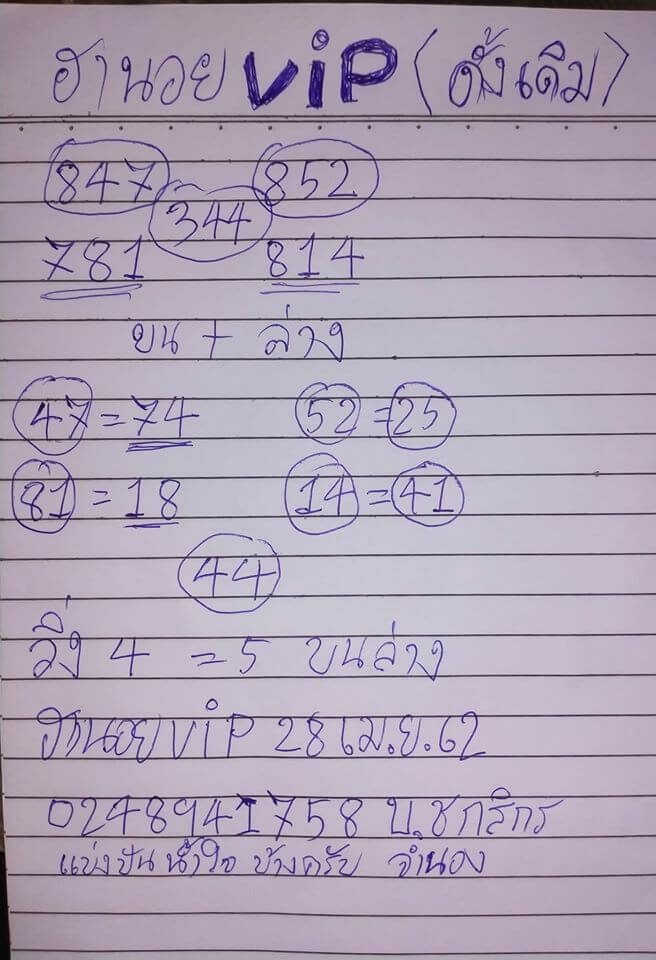 ฮานอย ViP (ดั้งเดิม)
847 852
344
781 814
บน + ล่าง
47 = 74 52 = 25
81 = 18 14 = 41
44
วิ่ง 4 = 5 บนล่าง
ฮานอย ViP 28 เม.ย. 62
0248941758 บ.ชกสิกร
แบ่งปันน้ำใจ บ้างครับ จำนอง